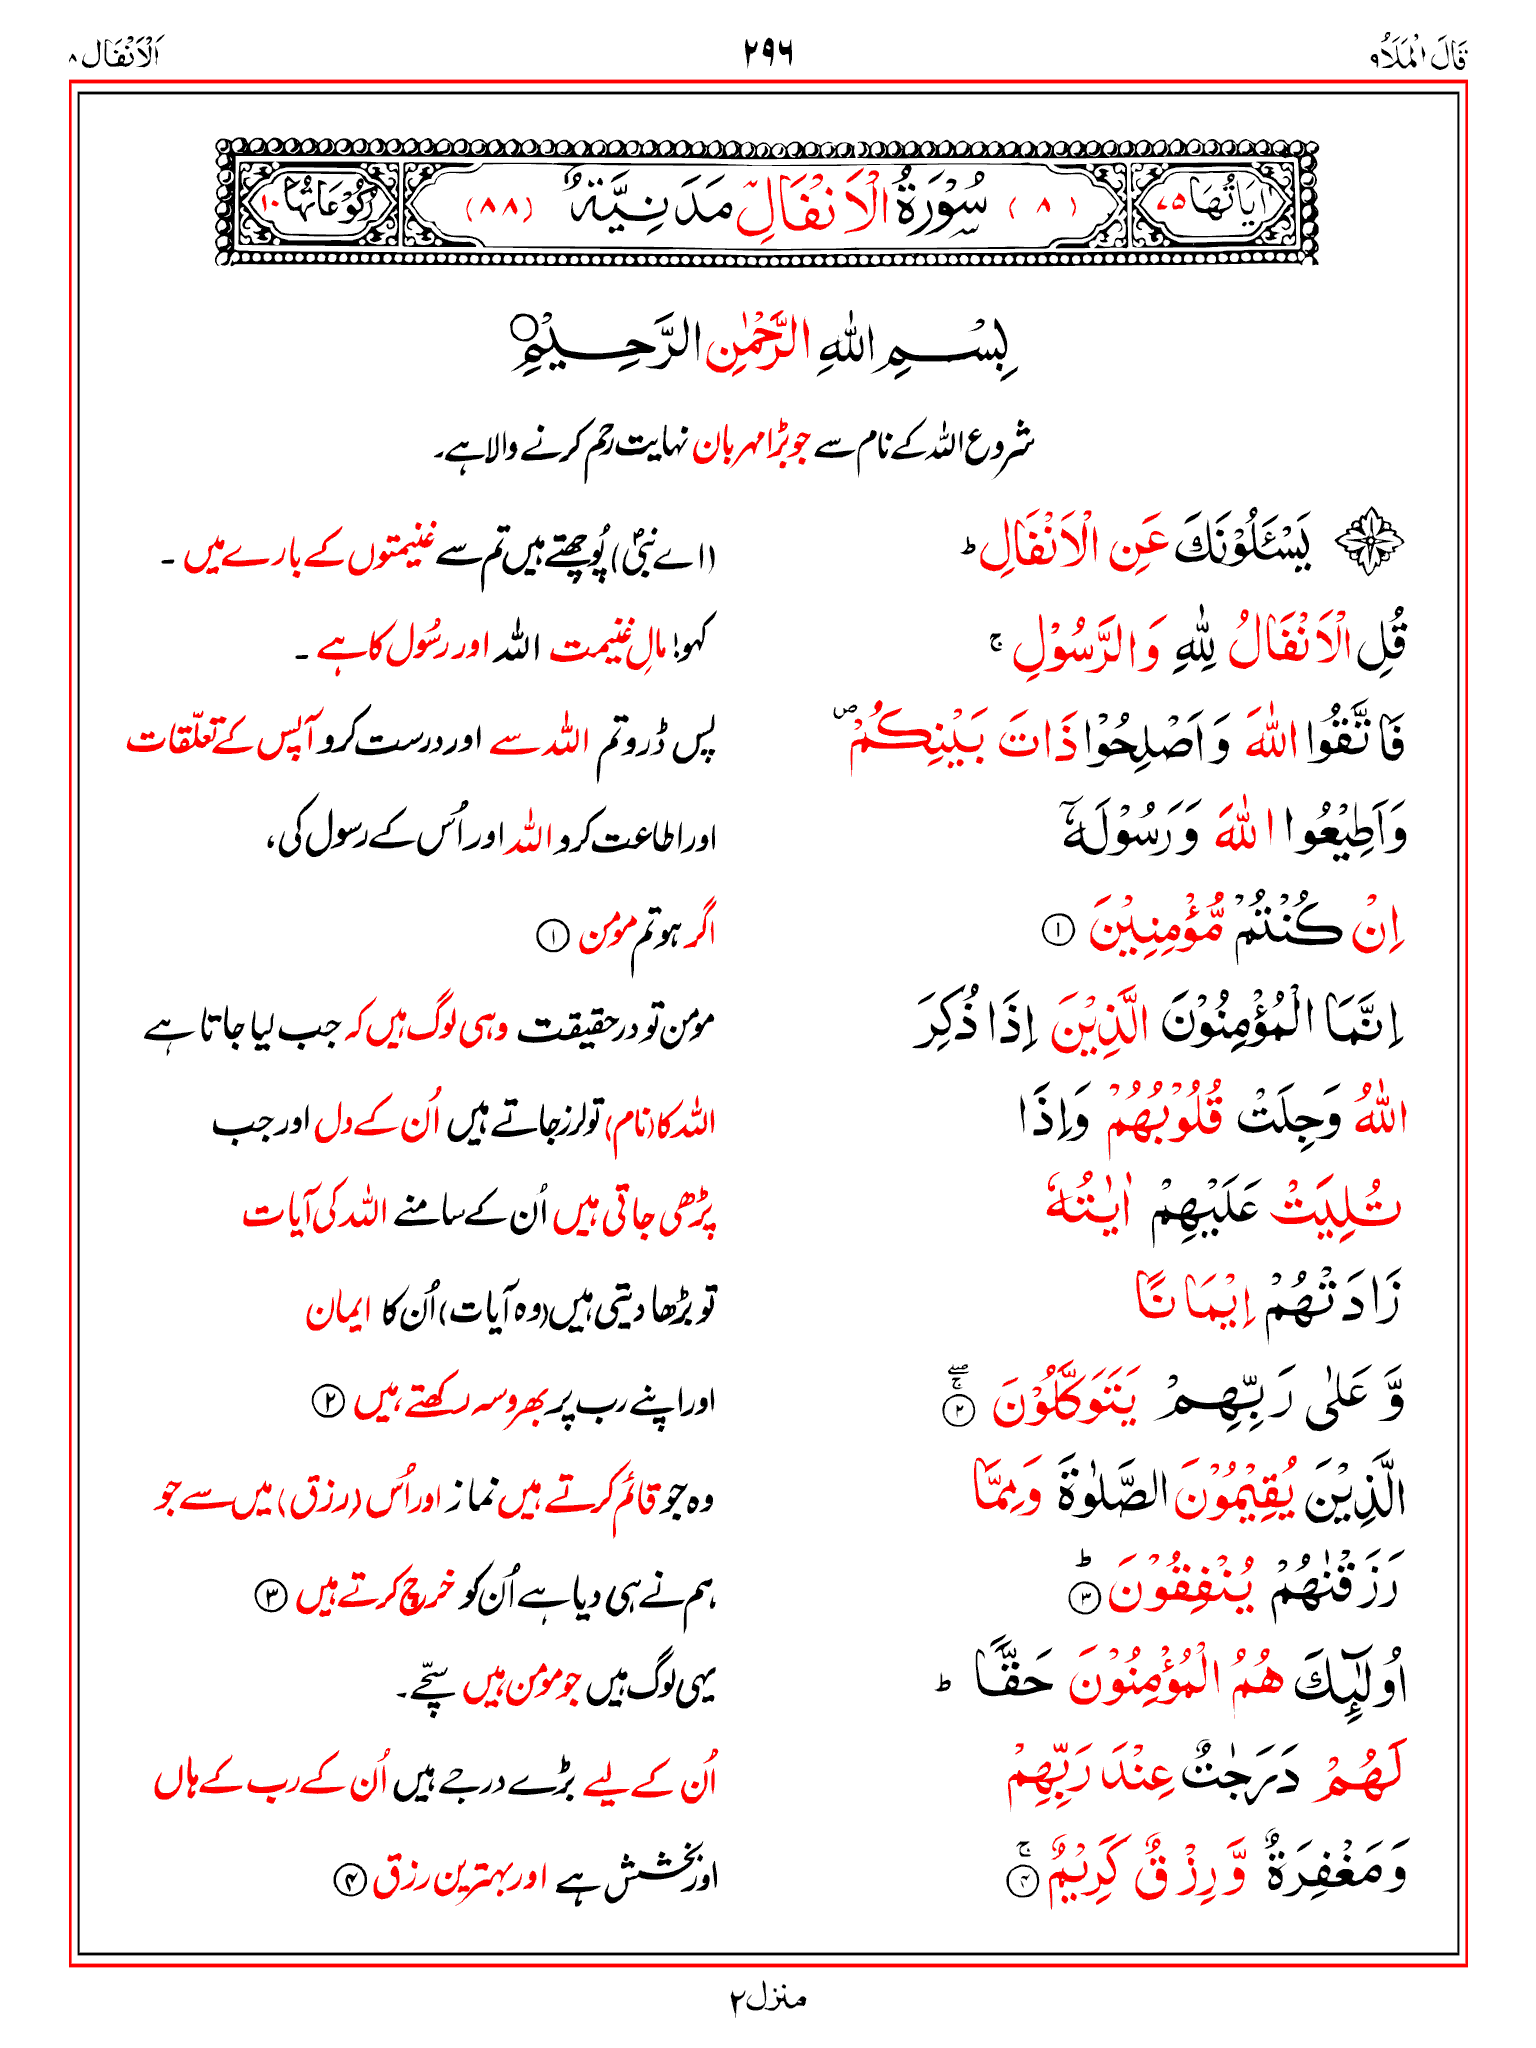 قَالَ الْمَلَاُ ۹ ۲۹۶ اَلْاَنْفَال ۸
اٰيَاتُهَا ۷۵ (۸) سُوْرَةُ الْاَنْفَالِ مَدَنِيَّةٌ (۸۸) رُكُوْعَاتُهَا ۱۰
بِسْمِ اللّٰهِ الرَّحْمٰنِ الرَّحِيْمِ ○
شروع اللہ کے نام سے جو بڑا مہربان نہایت رحم کرنے والا ہے۔
يَسْـَٔلُوْنَكَ عَنِ الْاَنْفَالِ ؕ (اے نبیؐ) پُوچھتے ہیں تم سے غنیمتوں کے بارے میں ۔
قُلِ الْاَنْفَالُ لِلّٰهِ وَالرَّسُوْلِ ۚ کہو! مالِ غنیمت اللہ اور رسُول کا ہے ۔
فَاتَّقُوا اللّٰهَ وَاَصْلِحُوْا ذَاتَ بَيْنِكُمْ ۪ پس ڈرو تم اللہ سے اور درست کرو آپس کے تعلّقات
وَاَطِيْعُوا اللّٰهَ وَرَسُوْلَهٗۤ اور اطاعت کرو اللہ اور اُس کے رسول کی،
اِنْ كُنْتُمْ مُّؤْمِنِيْنَ ① اگر ہو تم مومن ①
اِنَّمَا الْمُؤْمِنُوْنَ الَّذِيْنَ اِذَا ذُكِرَ مومن تو درحقیقت وہی لوگ ہیں کہ جب لیا جاتا ہے
اللّٰهُ وَجِلَتْ قُلُوْبُهُمْ وَاِذَا اللہ کا (نام) تو لرز جاتے ہیں اُن کے دل اور جب
تُلِيَتْ عَلَيْهِمْ اٰيٰتُهٗ پڑھی جاتی ہیں اُن کے سامنے اللہ کی آیات
زَادَتْهُمْ اِيْمَانًا تو بڑھا دیتی ہیں (وہ آیات) اُن کا ایمان
وَّعَلٰى رَبِّهِمْ يَتَوَكَّلُوْنَ ② ۖۚ اور اپنے رب پر بھروسہ رکھتے ہیں ②
الَّذِيْنَ يُقِيْمُوْنَ الصَّلٰوةَ وَمِمَّا وہ جو قائم کرتے ہیں نماز اور اُس (رزق) میں سے جو
رَزَقْنٰهُمْ يُنْفِقُوْنَ ③ ؕ ہم نے ہی دیا ہے اُن کو خرچ کرتے ہیں ③
اُولٰٓئِكَ هُمُ الْمُؤْمِنُوْنَ حَقًّا ؕ یہی لوگ ہیں جو مومن ہیں سچّے۔
لَهُمْ دَرَجٰتٌ عِنْدَ رَبِّهِمْ اُن کے لیے بڑے درجے ہیں اُن کے رب کے ہاں
وَمَغْفِرَةٌ وَّرِزْقٌ كَرِيْمٌ ④ ۚ اور بخشش ہے اور بہترین رزق ④
منزل ۲